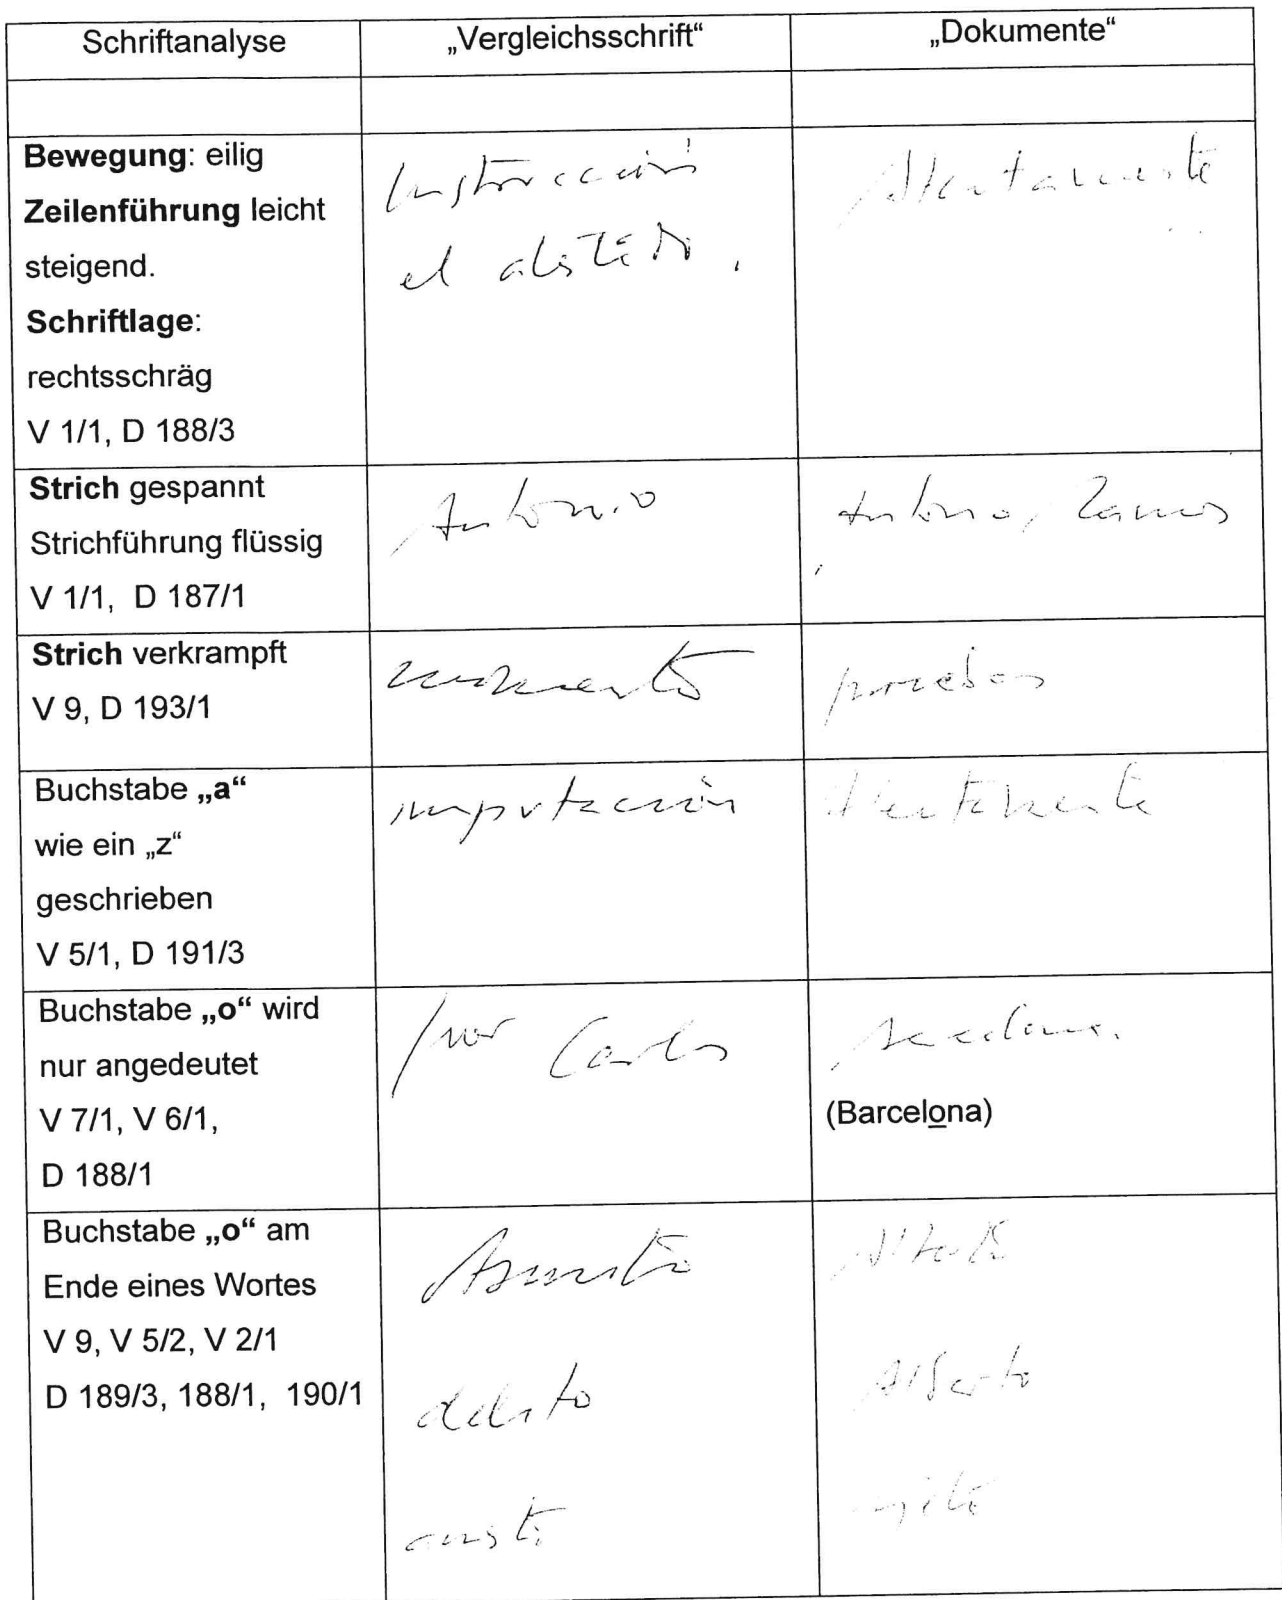 Schriftanalyse
„Vergleichsschrift“
„Dokumente“
Bewegung: eilig
Zeilenführung leicht
steigend.
Schriftlage:
rechtsschräg
V 1/1, D 188/3
Instrucción
el
Atentamente
Strich gespannt
Strichführung flüssig
V 1/1, D 187/1
Antonio
Antonio, Ramos
Strich verkrampft
V 9, D 193/1
pruebas
Buchstabe „a“
wie ein „z“
geschrieben
V 5/1, D 191/3
imputación
Atentamente
Buchstabe „o“ wird
nur angedeutet
V 7/1, V 6/1,
D 188/1
por Carlos
(Barcelona)
Buchstabe „o“ am
Ende eines Wortes
V 9, V 5/2, V 2/1
D 189/3, 188/1, 190/1
Asunto
delito
Alberto